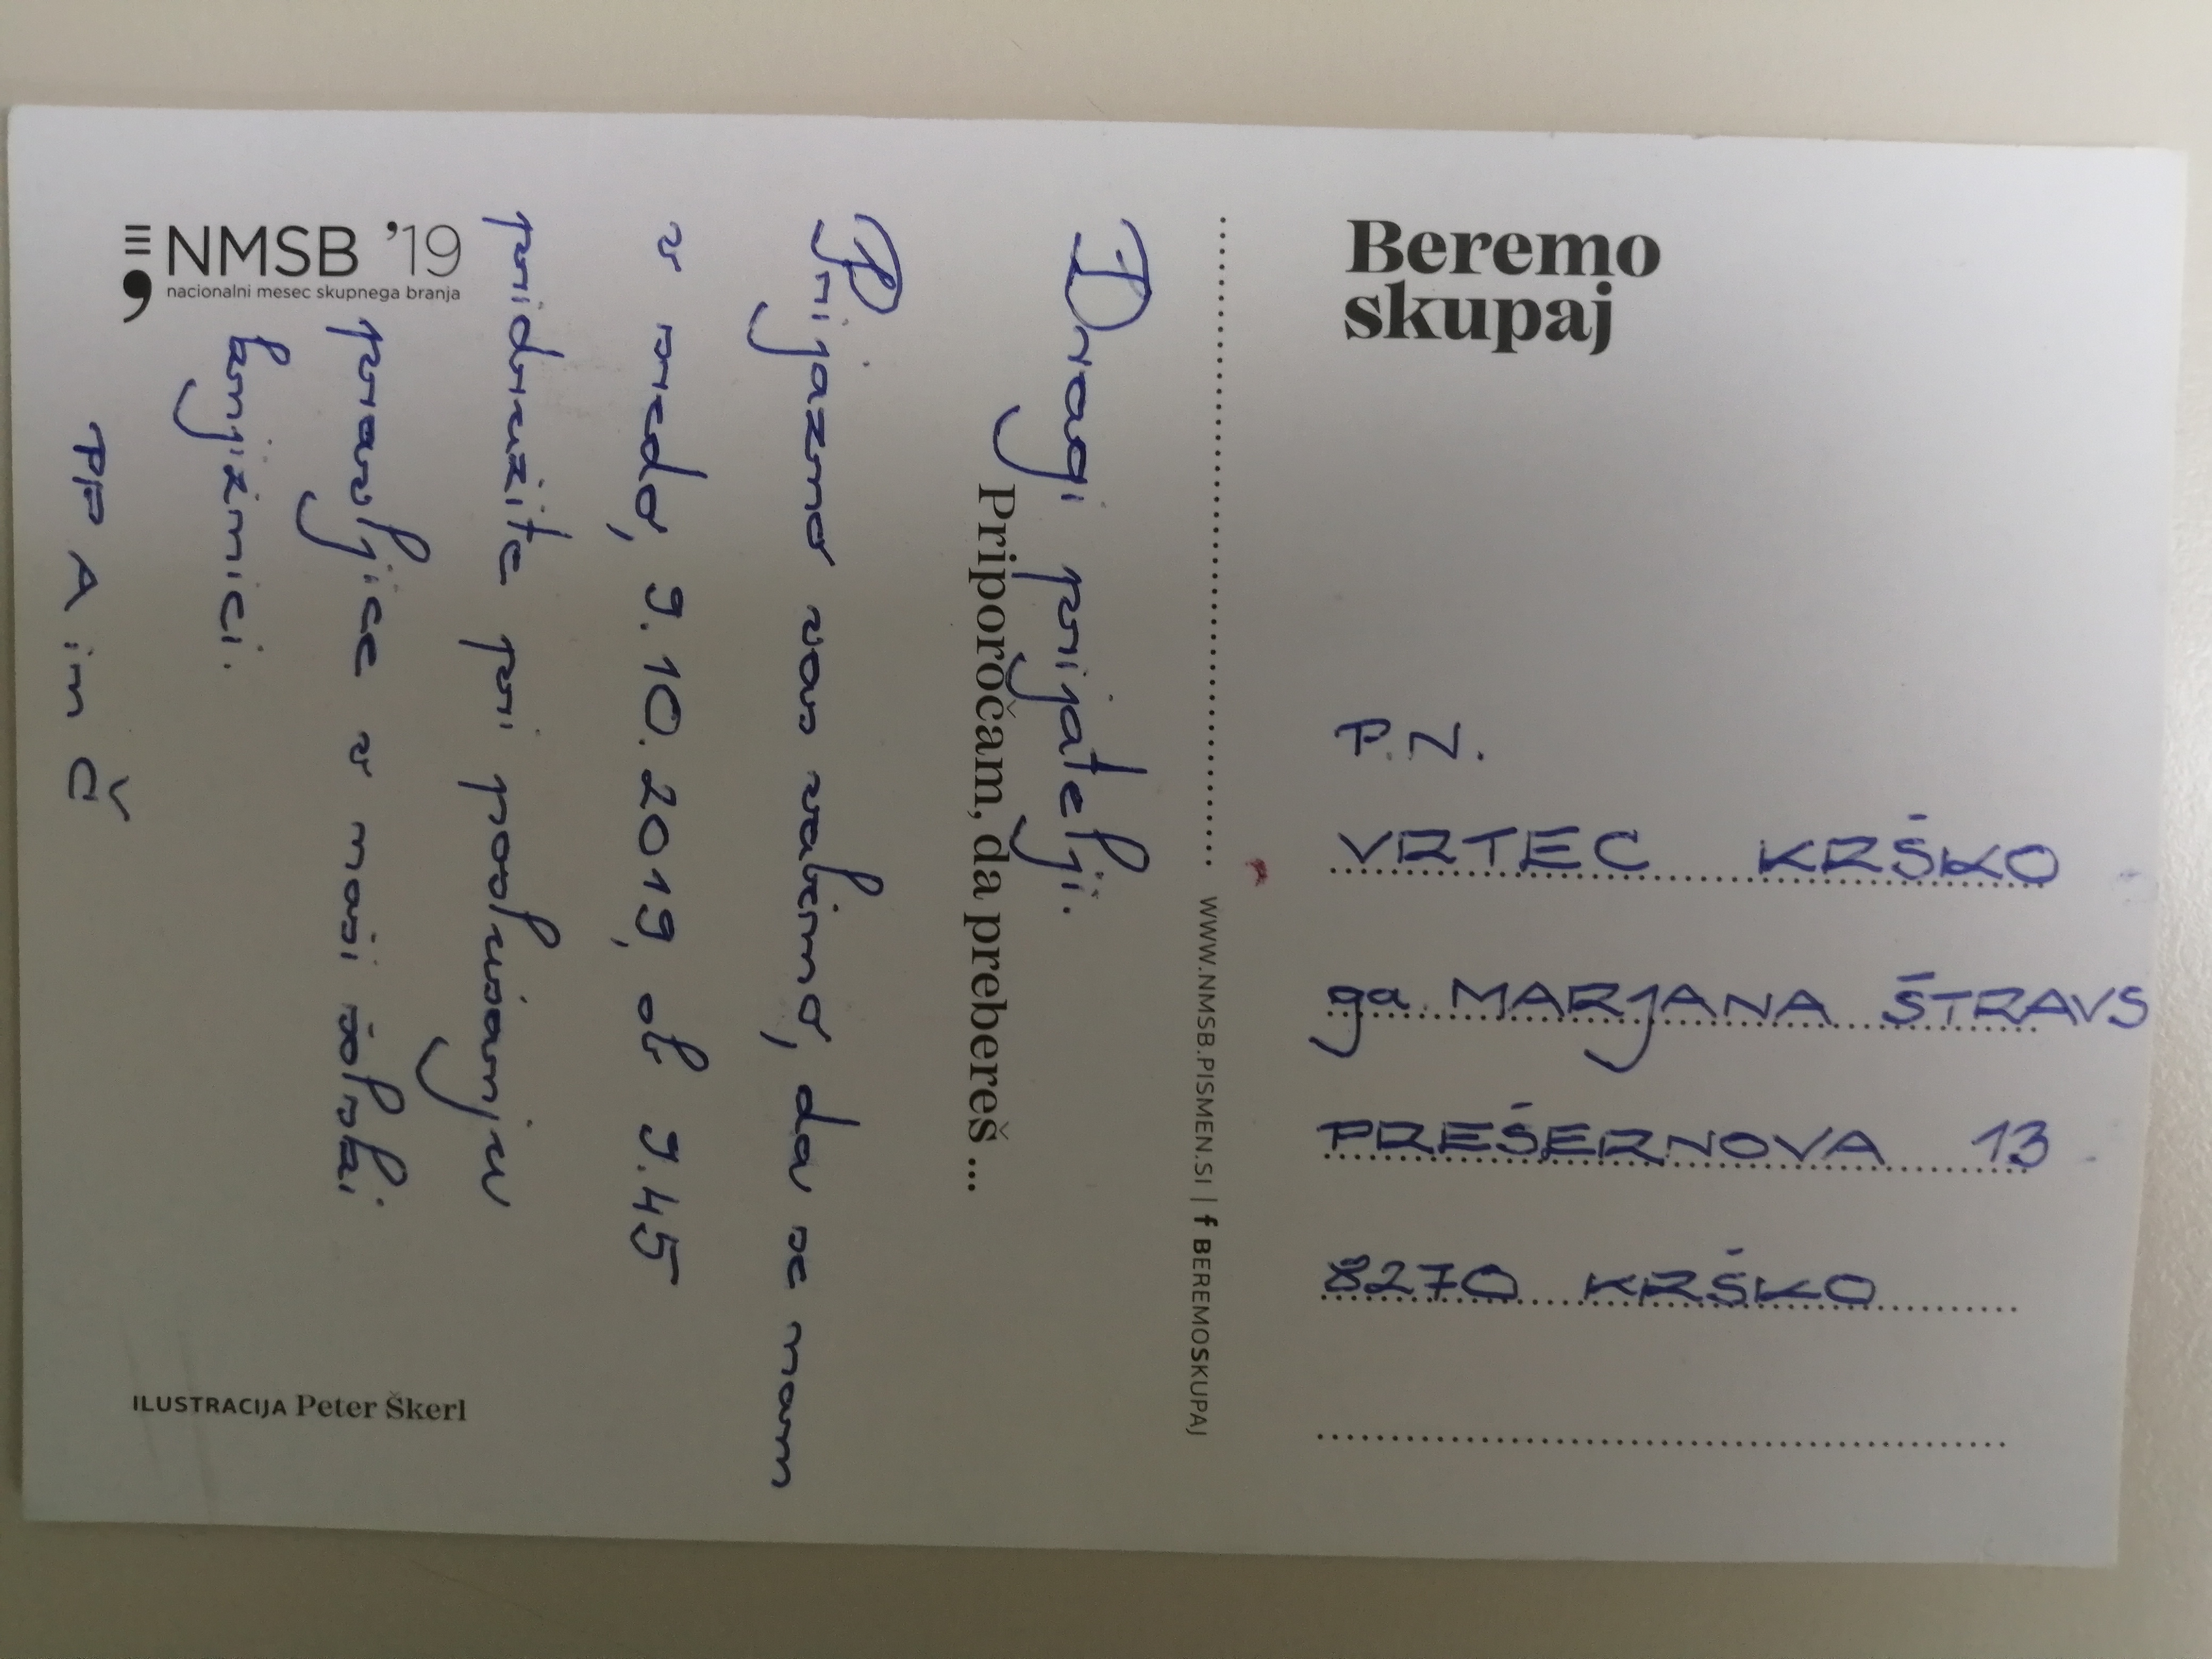 Beremo
skupaj
P.N.
VRTEC KRŠKO
ga. MARJANA ŠTRAVS
PREŠERNOVA 13
8270 KRŠKO
WWW.NMSB.PISMEN.SI | f BEREMOSKUPAJ
Dragi prijatelji.
Priporočam, da prebereš ...
Prijazno vas vabimo, da se nam
v sredo, 9.10.2019, ob 9.45
pridružite pri poslušanju
pravljice v naši šolski
knjižnici.
PPP A in Č
NMSB '19
nacionalni mesec skupnega branja
ILUSTRACIJA Peter Škerl